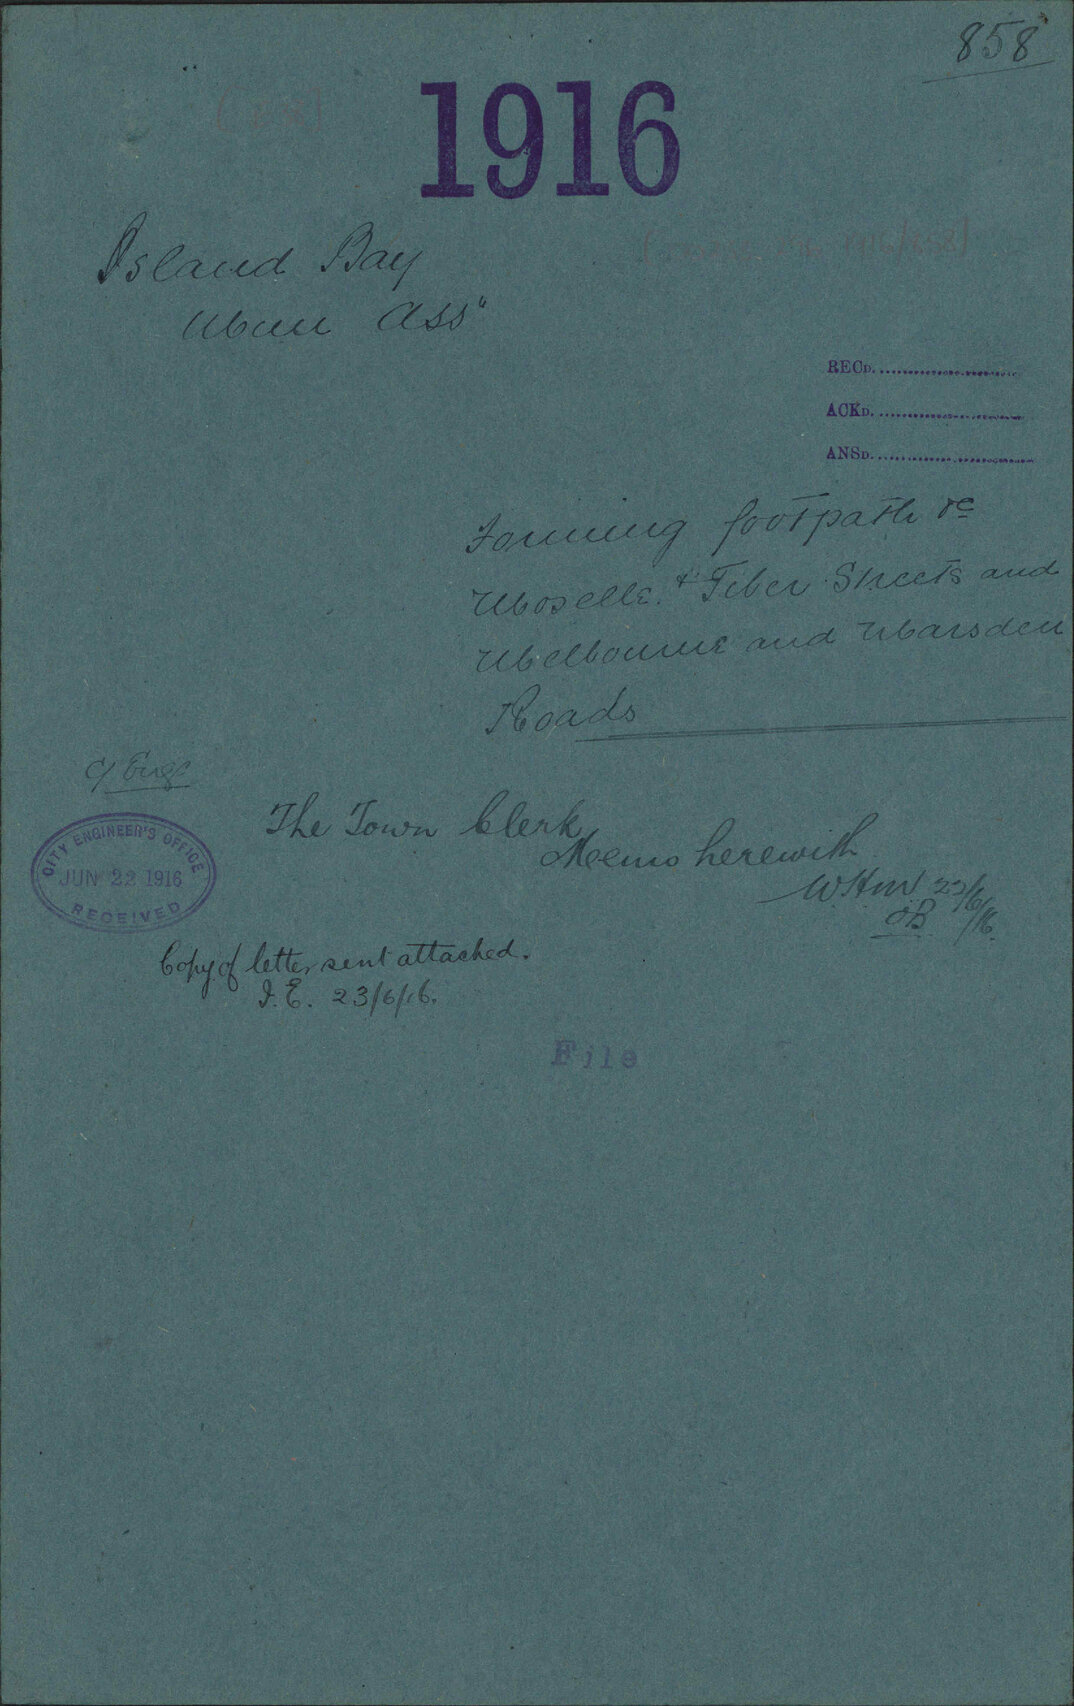 858
1916
Island Bay
Mun Ass"
RECD.
ACKD.
ANSD.
Forming footpath &c
Moselle & Tiber Streets and
Melbourne and Marsden
Roads
C/ Engr
The Town Clerk,
Memo herewith
CITY ENGINEER'S OFFICE
JUN 22 1916
RECEIVED
W.H.M. 22/6/16.
OB
Copy of letter sent attached.
I.E. 23/6/16.
File